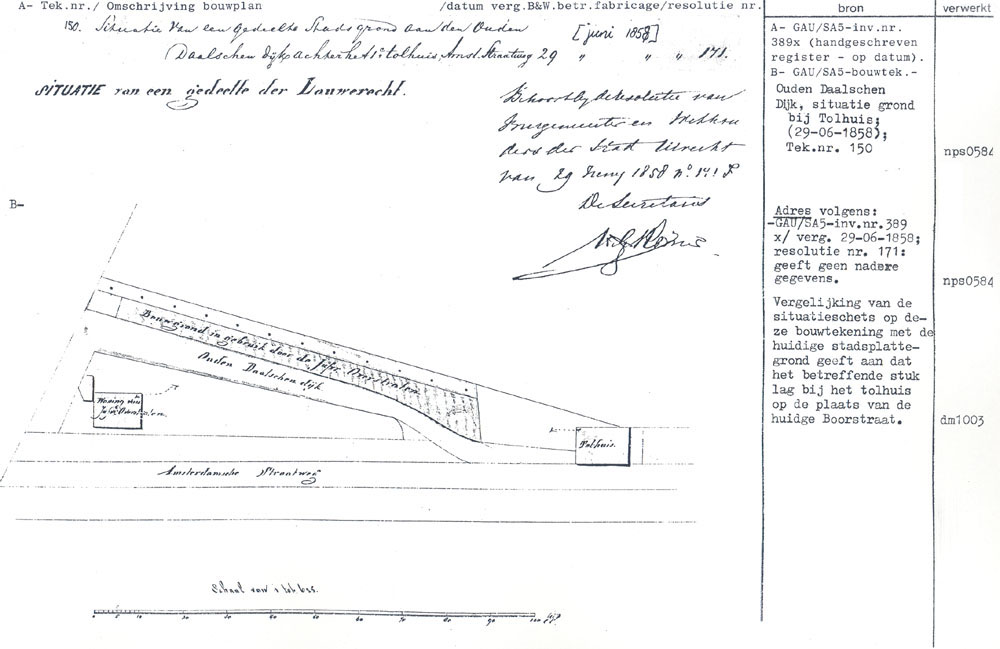 A- Tek.nr./ Omschrijving bouwplan /datum verg.B&W.betr.fabricage/resolutie nr.
150. Situatie van een gedeelte Stadsgrond aan den Ouden [juni 1858]
Daalschen dijk achter het 1e tolhuis, Amst. Straatweg 29 " " " 171.
SITUATIE van een gedeelte der Lauwerecht.
Behoort bij de resolutie van
Burgemeester en Wethou
ders der Stad Utrecht
van 29 Juny 1858 no.
De Secretaris
B-
Bouwgrond in gebruik door de
Ouden Daalschen dijk
Woning van
Tolhuis.
Amsterdamsche Straatweg
Schaal van 1 tot 625.
bron
A- GAU/SA5-inv.nr.
389x (handgeschreven
register - op datum).
B- GAU/SA5-bouwtek.-
Ouden Daalschen
Dijk, situatie grond
bij Tolhuis;
(29-06-1858);
Tek.nr. 150
Adres volgens:
-GAU/SA5-inv.nr.389
x/ verg. 29-06-1858;
resolutie nr. 171:
geeft geen nadere
gegevens.
Vergelijking van de
situatieschets op de-
ze bouwtekening met de
huidige stadsplatte-
grond geeft aan dat
het betreffende stuk
lag bij het tolhuis
op de plaats van de
huidge Boorstraat.
verwerkt
nps0584
nps0584
dm1003